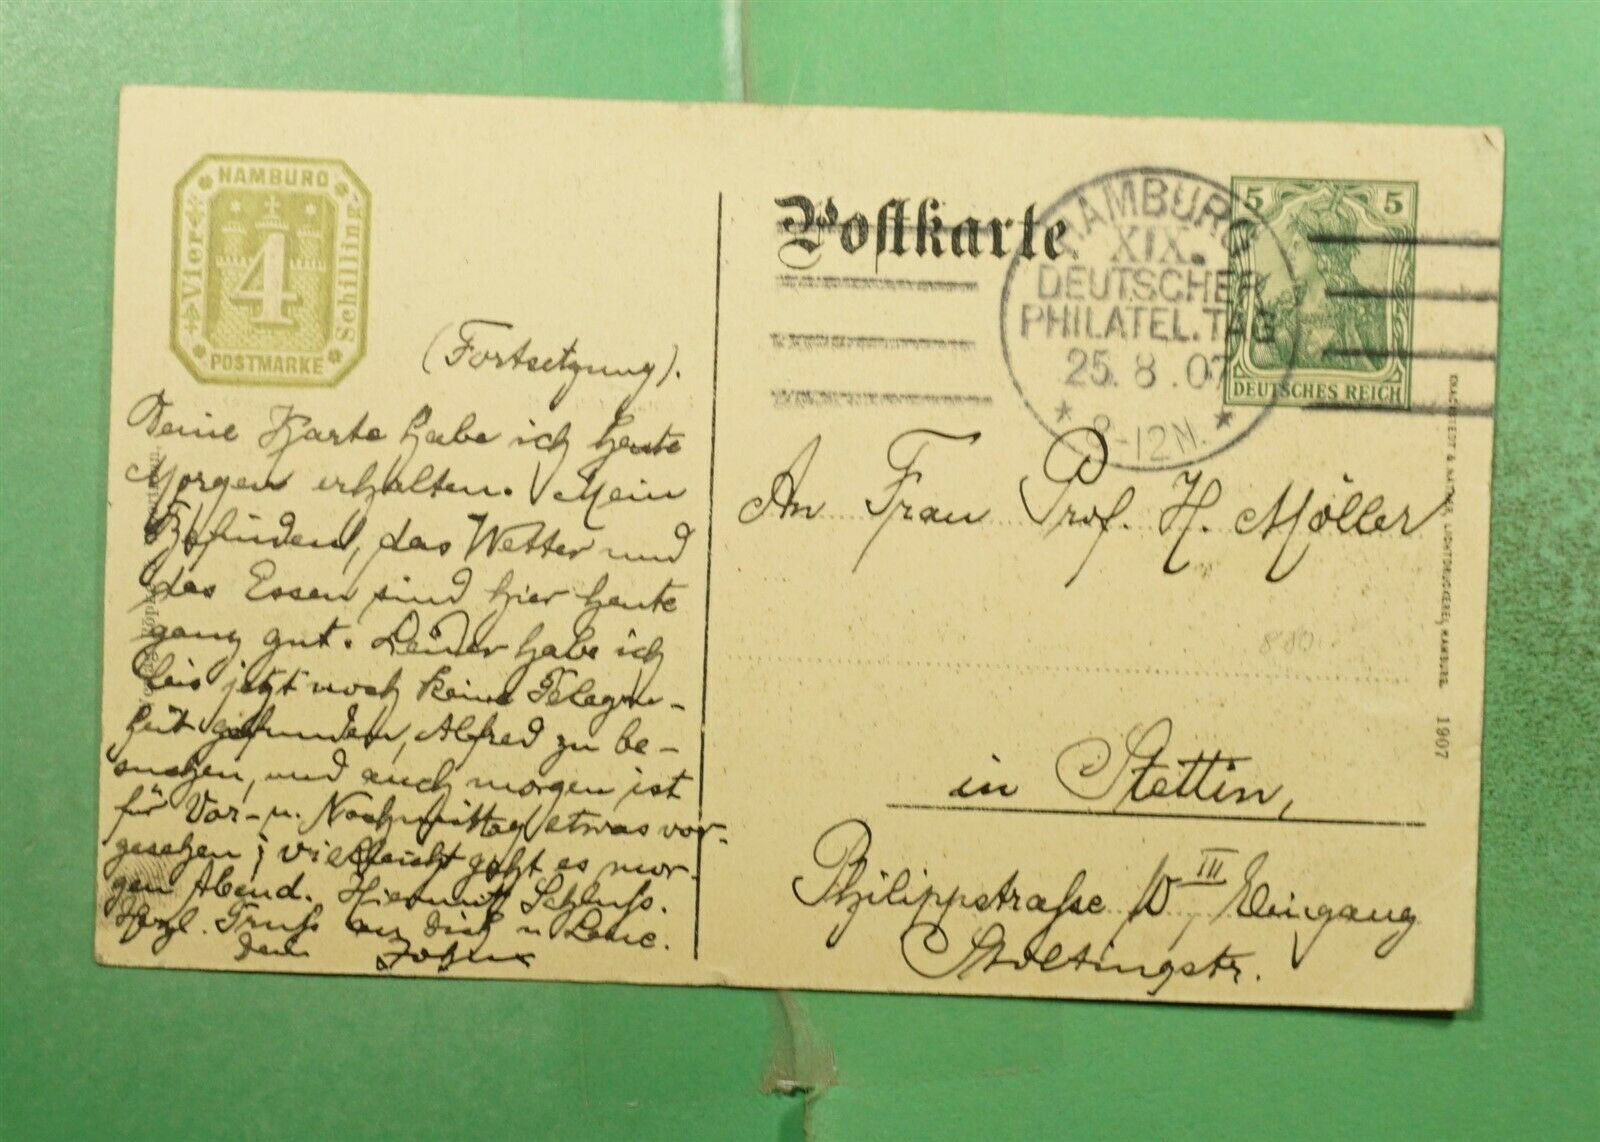 HAMBURG
Vier
4
Schilling
POSTMARKE
Postkarte
HAMBURG
XIX.
DEUTSCHER
PHILATEL. TAG
25. 8. 07
* 8-12N. *
5 5
DEUTSCHES REICH
(Fortsetzung).
Deine Karte habe ich heute
Morgen erhalten. Mein
Befinden, das Wetter und
das Essen sind hier heute
ganz gut. Leider habe ich
bis jetzt noch keine Gelegen-
heit gefunden, Alfred zu be-
suchen, und auch morgen ist
für Vor- u. Nachmittag etwas vor-
gesehen; vielleicht geht es mor-
gen Abend. Hiermit Schluss.
Herzl. Gruß an Dich u
Dein
An Frau Prof. H. Möller
880
in Stettin,
Philippstraße 10 III, Eingang
Stoltingstr.
LICHTDRUCKEREI, HAMBURG. 1907